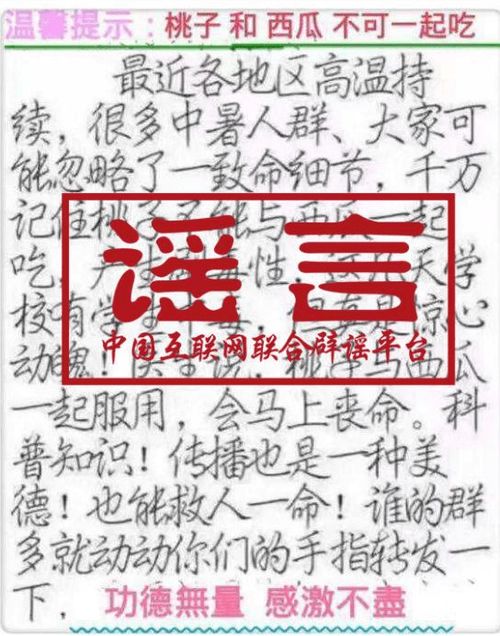 温馨提示：桃子 和 西瓜 不可一起吃
最近各地区高温持
续，很多中暑人群、大家可
能忽略了一致命细节，千万
记住桃子不能与西瓜一起
吃，产生剧毒性，这几天学
校有学生中毒，
惊心
动魄！医生说，桃子与西瓜
谣言
中国互联网联合辟谣平台
一起服用，会马上丧命。科
普知识！传播也是一种美
德！也能救人一命！谁的群
多就动动你们的手指转发一
下，
功德無量 感激不盡